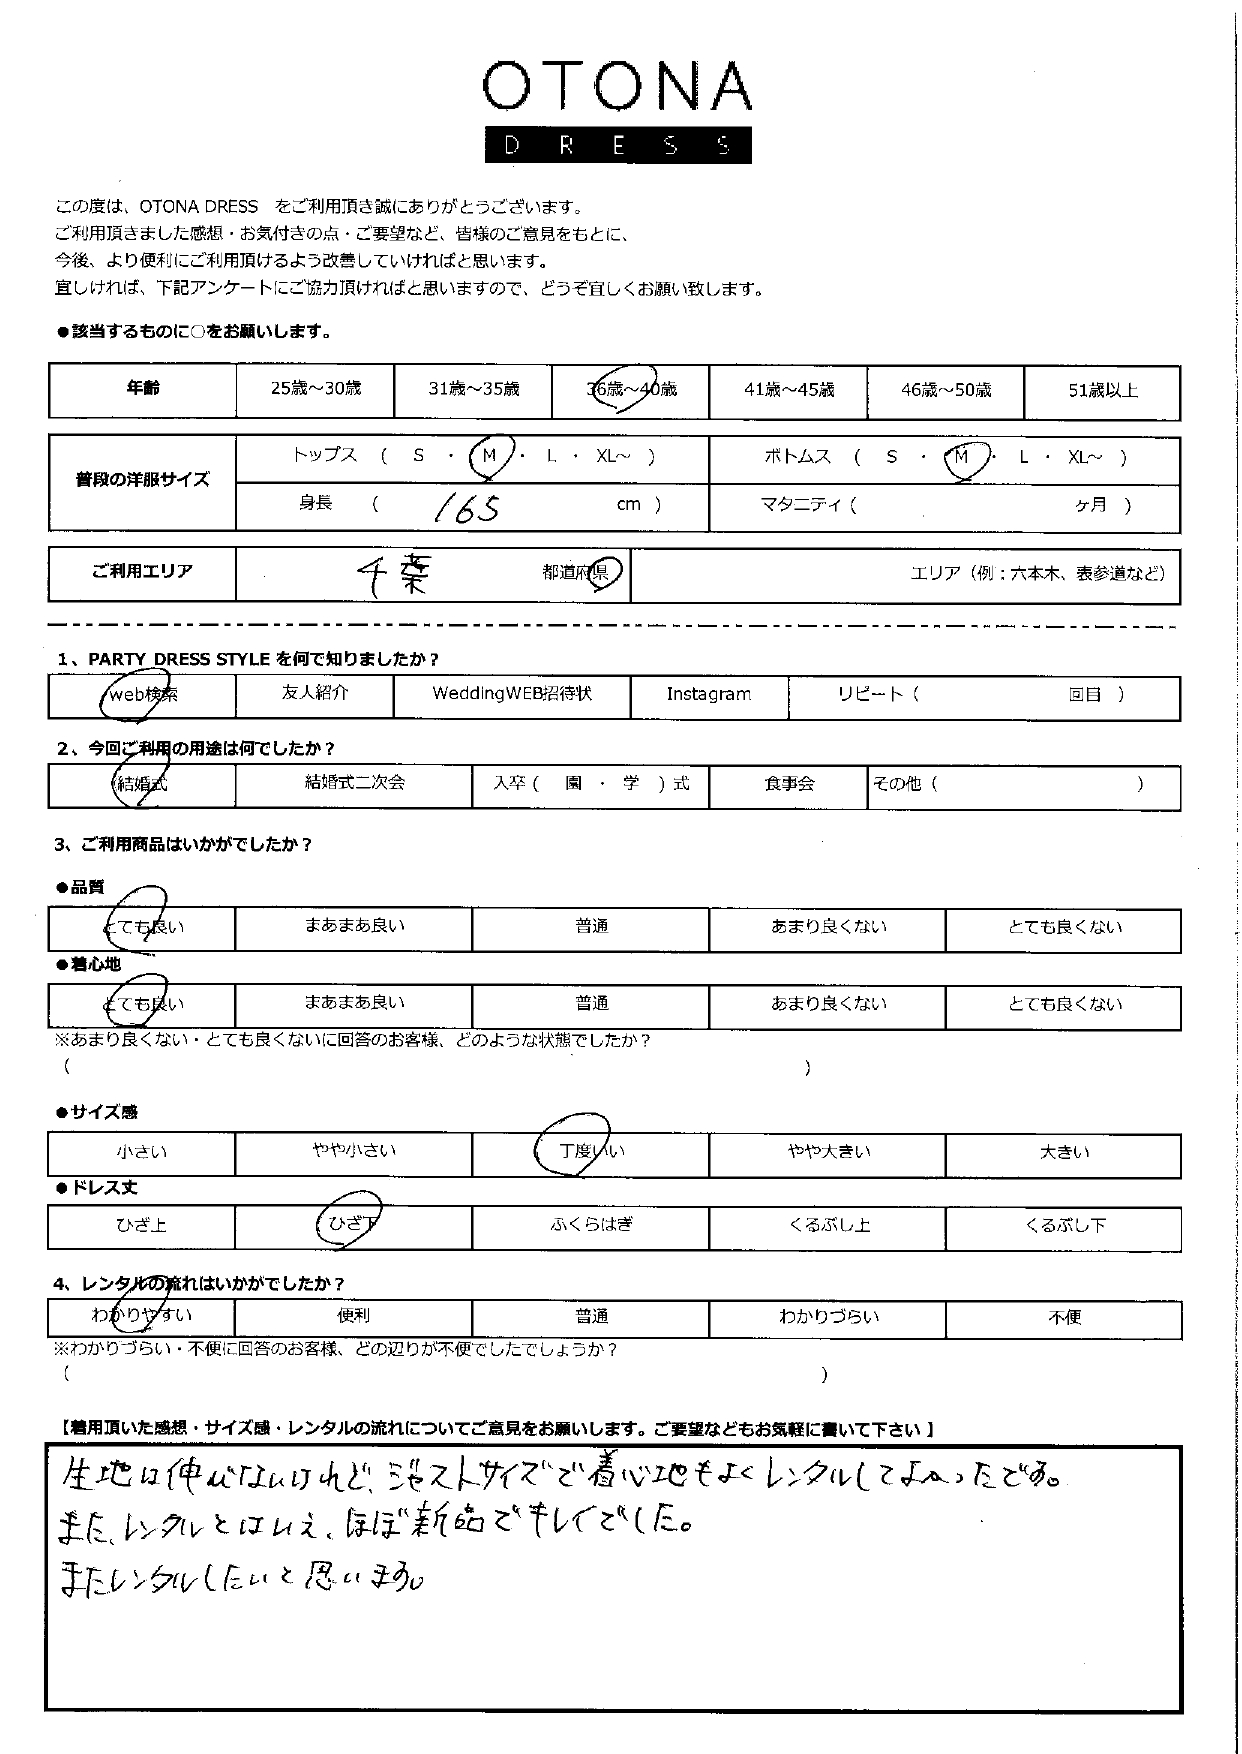 OTONA
DRESS
この度は、OTONA DRESS をご利用頂き誠にありがとうございます。
ご利用頂きました感想・お気付きの点・ご要望など、皆様のご意見をもとに、
今後、より便利にご利用頂けるよう改善していければと思います。
宜しければ、下記アンケートにご協力頂ければと思いますので、どうぞ宜しくお願い致します。
●該当するものに○をお願いします。
年齢 25歳～30歳 31歳～35歳 36歳～40歳 41歳～45歳 46歳～50歳 51歳以上
普段の洋服サイズ
トップス ( S ・ M ・ L ・ XL～ ) ボトムス ( S ・ M ・ L ・ XL～ )
身長 ( 165 cm ) マタニティ ( ヶ月 )
ご利用エリア 千葉 都道府県 エリア（例：六本木、表参道など）
1、PARTY DRESS STYLE を何で知りましたか？
web検索 友人紹介 WeddingWEB招待状 Instagram リピート ( 回目 )
2、今回ご利用の用途は何でしたか？
結婚式 結婚式二次会 入卒 ( 園 ・ 学 ) 式 食事会 その他 ( )
3、ご利用商品はいかがでしたか？
●品質
とても良い まあまあ良い 普通 あまり良くない とても良くない
●着心地
とても良い まあまあ良い 普通 あまり良くない とても良くない
※あまり良くない・とても良くないに回答のお客様、どのような状態でしたか？
( )
●サイズ感
小さい やや小さい 丁度いい やや大きい 大きい
●ドレス丈
ひざ上 ひざ下 ふくらはぎ くるぶし上 くるぶし下
4、レンタルの流れはいかがでしたか？
わかりやすい 便利 普通 わかりづらい 不便
※わかりづらい・不便に回答のお客様、どの辺りが不便でしたでしょうか？
( )
【着用頂いた感想・サイズ感・レンタルの流れについてご意見をお願いします。ご要望などもお気軽に書いて下さい 】
生地は伸びないけれど、ジャストサイズで着心地もよくレンタルしてよかったです。
また、レンタルとはいえ、ほぼ新品でキレイでした。
またレンタルしたいと思います。